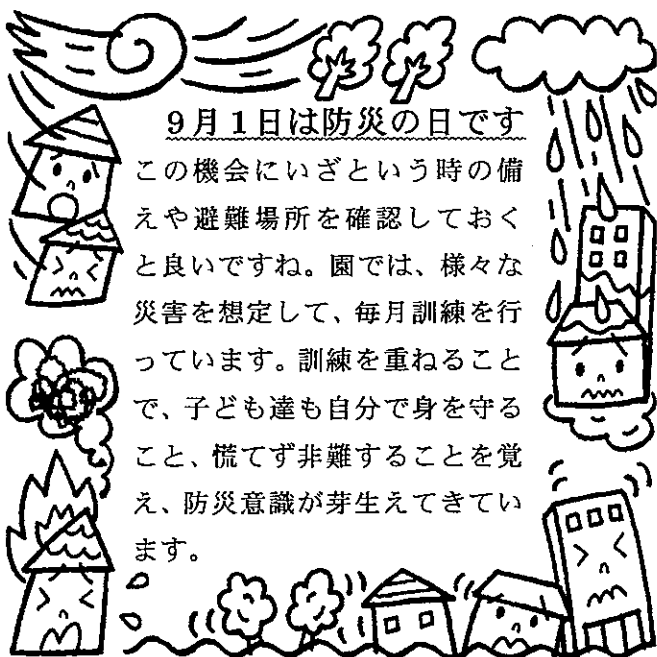 9月1日は防災の日です
この機会にいざという時の備
えや避難場所を確認しておく
と良いですね。園では、様々な
災害を想定して、毎月訓練を行
っています。訓練を重ねること
で、子ども達も自分で身を守る
こと、慌てず非難することを覚
え、防災意識が芽生えてきてい
ます。